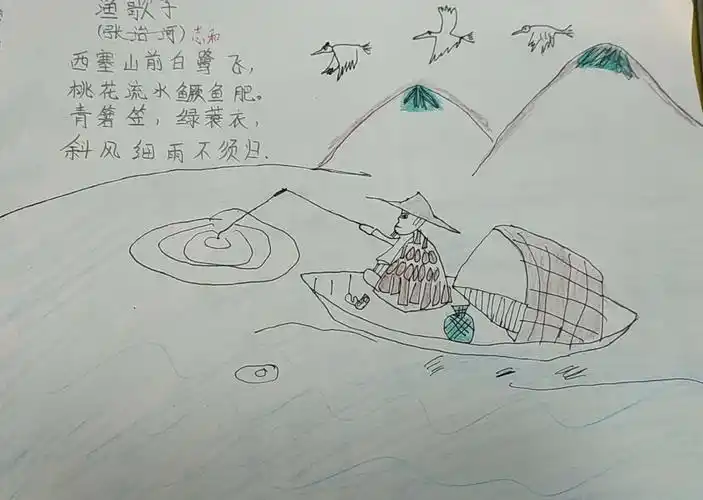 渔歌子
(张治河)志和
西塞山前白鹭飞,
桃花流水鳜鱼肥。
青箬笠,绿蓑衣,
斜风细雨不须归.